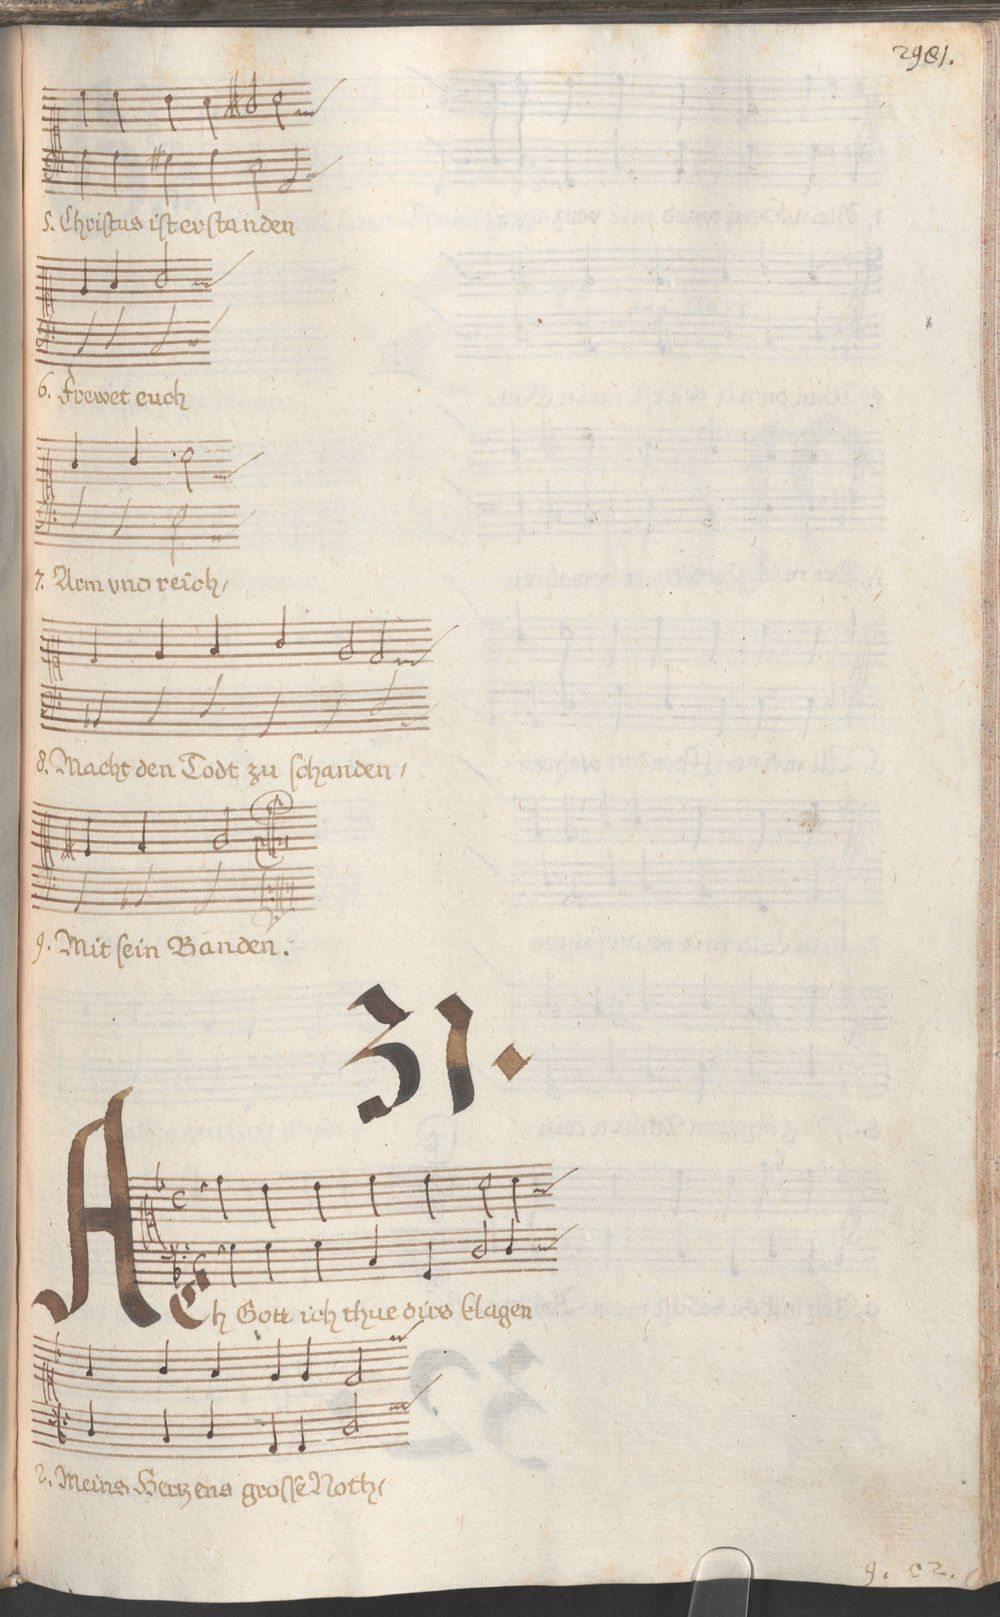 2981.
5. Christus ist erstanden
6. Frewet euch
7. Arm vnd reich,
8. Macht den Todt zu schanden,
9. Mit sein Banden.
31.
ACh Gott ich thue dirs klagen
2. Meins Hertzens grosse Noth,